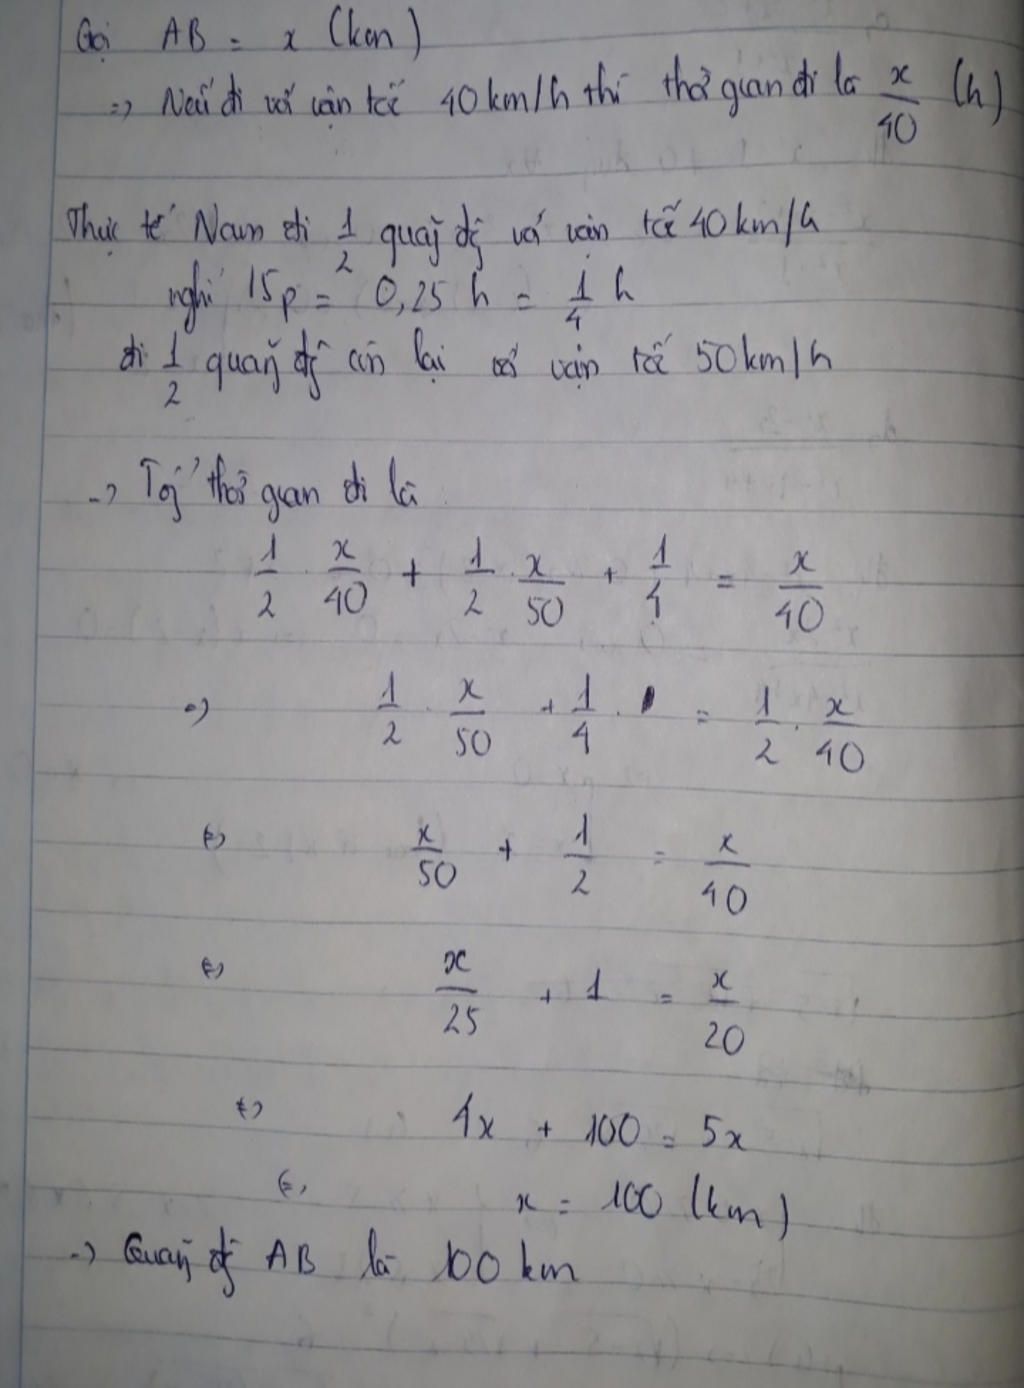 Gọi AB = x (km)
=> Nếu đi với vận tốc 40km/h thì thời gian đi là x/40 (h)
Thực tế Nam đi 1/2 quãg đg với vận tốc 40km/h
nghỉ 15p = 0,25 h = 1/4 h
đi 1/2 quãg đg còn lại với vận tốc 50km/h
-> Tog thời gian đi là
1/2 . x/40 + 1/2 . x/50 + 1/4 = x/40
=> 1/2 . x/50 + 1/4 . = 1/2 . x/40
<=> x/50 + 1/2 = x/40
<=> x/25 + 1 = x/20
<=> 4x + 100 = 5x
<=> x = 100 (km)
-> Quãg đg AB là 100 km